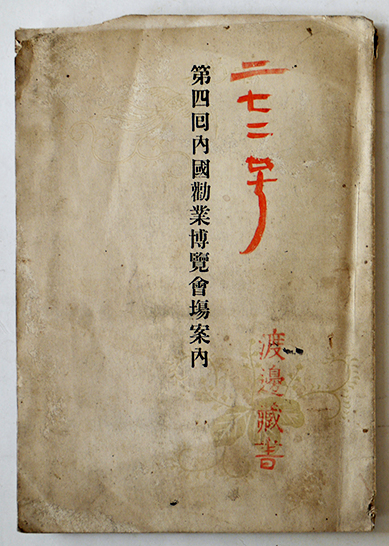 二七二号
渡邊藏書
第四回內國勸業博覽會場案內